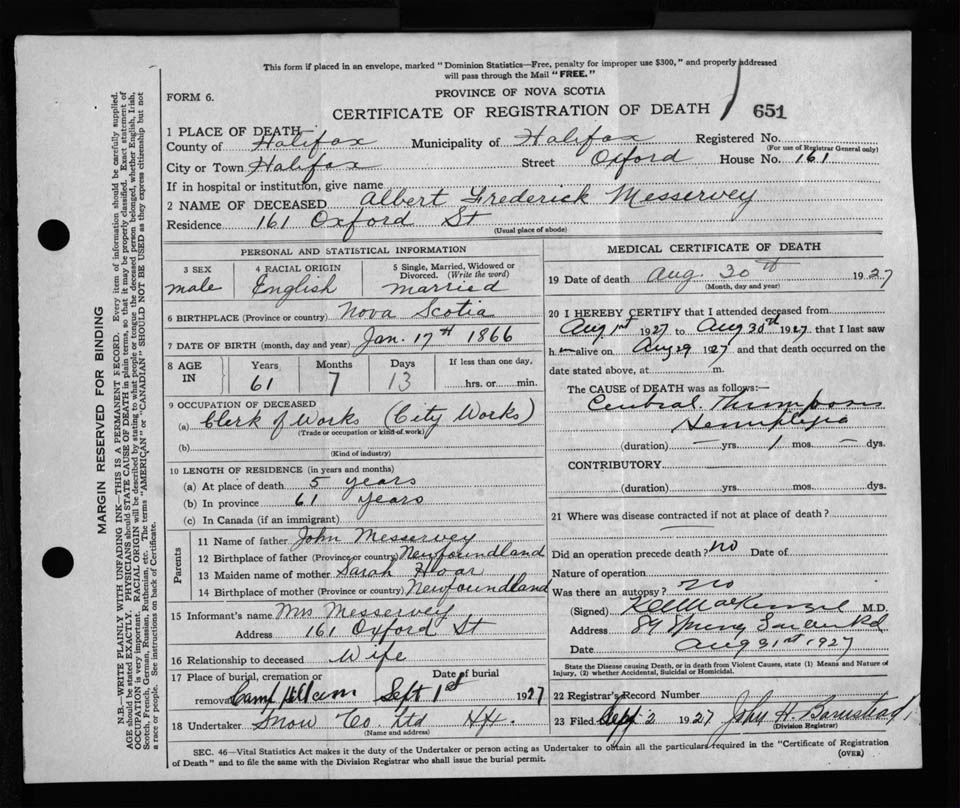 This form if placed in an envelope, marked "Dominion Statistics—Free, penalty for improper use $300," and properly addressed
will pass through the Mail "FREE."
FORM 6.
PROVINCE OF NOVA SCOTIA
CERTIFICATE OF REGISTRATION OF DEATH
651
1 PLACE OF DEATH
County of Halifax Municipality of Halifax Registered No.
(For use of Registrar General only)
City or Town Halifax Street Oxford House No. 161
If in hospital or institution, give name
2 NAME OF DECEASED Albert Frederick Messervey
Residence 161 Oxford St
(Usual place of abode)
PERSONAL AND STATISTICAL INFORMATION
3 SEX 4 RACIAL ORIGIN 5 Single, Married, Widowed or
Divorced. (Write the word)
male English married
6 BIRTHPLACE (Province or country) Nova Scotia
7 DATE OF BIRTH (month, day and year) Jan. 17th 1866
8 AGE IN Years Months Days If less than one day,
61 7 13 hrs. or min.
9 OCCUPATION OF DECEASED
(a) Clerk of Works (City Works)
(Trade or occupation or kind of work)
(b)
(Kind of industry)
10 LENGTH OF RESIDENCE (in years and months)
(a) At place of death 5 years
(b) In province 61 years
(c) In Canada (if an immigrant)
Parents
11 Name of father John Messervey
12 Birthplace of father (Province or country) Newfoundland
13 Maiden name of mother Sarah Hoar
14 Birthplace of mother (Province or country) Newfoundland
15 Informant's name Mrs Messervey
Address 161 Oxford St
16 Relationship to deceased Wife
17 Place of burial, cremation or Date of burial
removal Camp Hill Cem Sept 1st 1927
18 Undertaker Snow Co. Ltd Hx.
(Name and address)
MEDICAL CERTIFICATE OF DEATH
19 Date of death Aug. 30th 1927
(Month, day and year)
20 I HEREBY CERTIFY that I attended deceased from
Aug 1st 1927 to Aug 30th 1927, that I last saw
h alive on Aug 29 1927 and that death occurred on the
date stated above, at m.
The CAUSE of DEATH was as follows:—
Thrombosis
Hemiplegia
(duration) — yrs. 1 mos. — dys.
CONTRIBUTORY
(duration) yrs. mos. dys.
21 Where was disease contracted if not at place of death?
Did an operation precede death? no Date of
Nature of operation
Was there an autopsy? no
(Signed) MacKenzie M.D.
Address 89 Spring Garden Rd
Date Aug 31st 1927
State the Disease causing Death, or in death from Violent Causes, state (1) Means and Nature of
Injury, (2) whether Accidental, Suicidal or Homicidal.
22 Registrar's Record Number
23 Filed Sept 2 1927 John H. Barnstead
(Division Registrar)
SEC. 46—Vital Statistics Act makes it the duty of the Undertaker or person acting as Undertaker to obtain all the particulars required in the "Certificate of Registration
of Death" and to file the same with the Division Registrar who shall issue the burial permit.
(OVER)
MARGIN RESERVED FOR BINDING
N.B.—WRITE PLAINLY WITH UNFADING INK—THIS IS A PERMANENT RECORD. Every item of information should be carefully supplied.
AGE should be stated EXACTLY. PHYSICIANS should STATE CAUSE OF DEATH in plain terms, so that it may be properly classified. Exact statement of
OCCUPATION is very important. RACIAL ORIGIN will be described by stating to what people or tongue the deceased person belonged, whether English, Irish,
Scotch, French, German, Russian, Ruthenian, etc. The terms "AMERICAN" or "CANADIAN" SHOULD NOT BE USED as they express citizenship but not
a race or people. See instructions on back of Certificate.